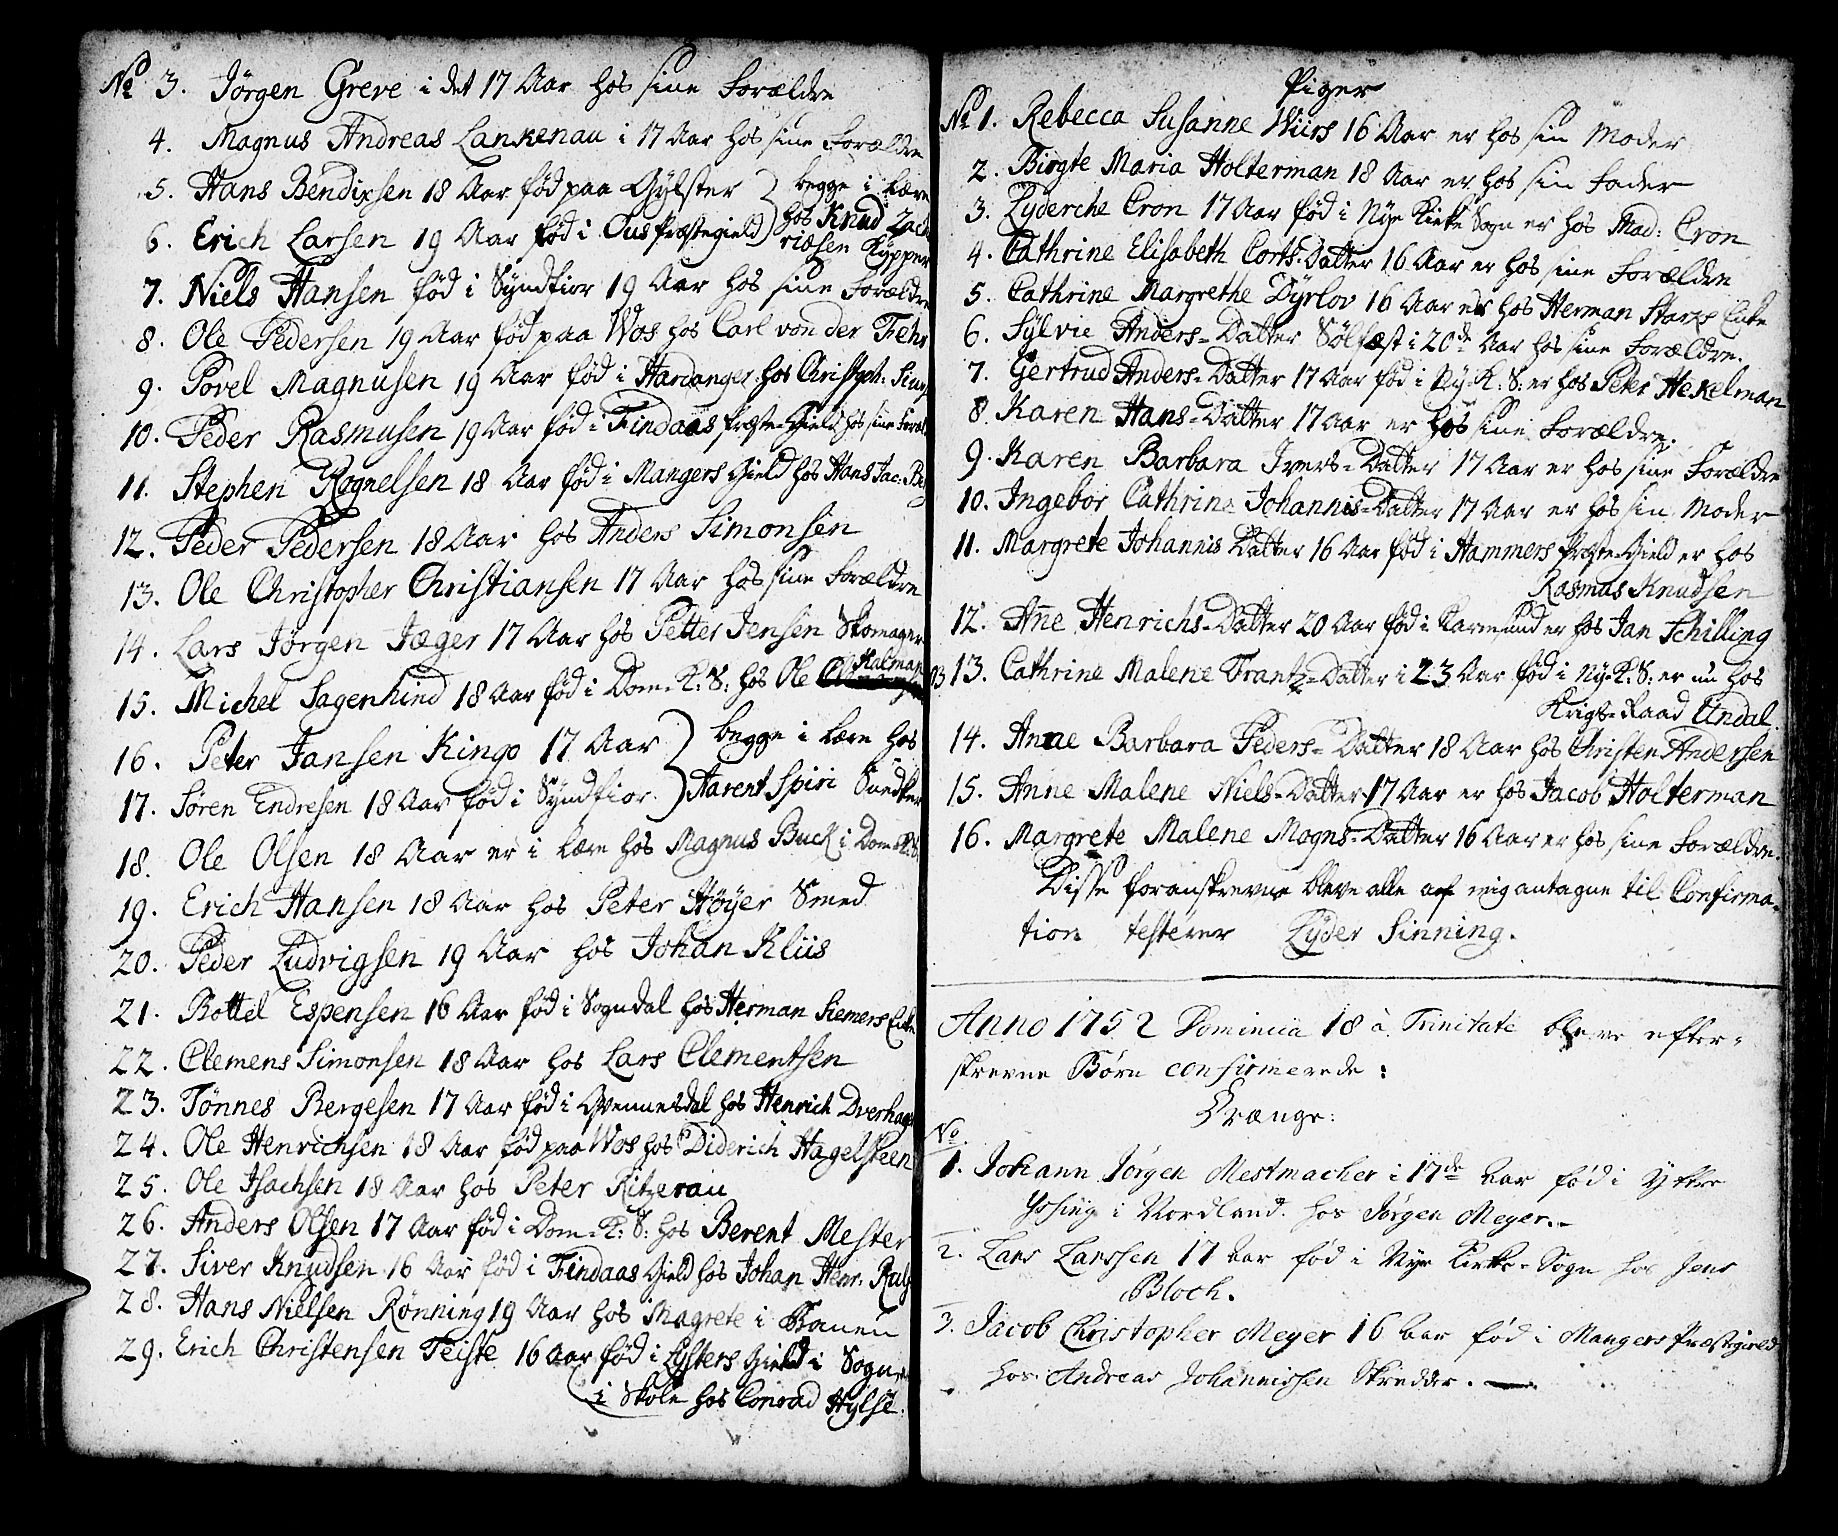 No 3. Jörgen Greve i det 17 Aar hos sine Forældre
4. Magnus Andreas Lankenau i 17 Aar hos sine Forældre
5. Hans Bendixsen 18 Aar fød paa Gylster } begge i Lære
6. Erich Larsen 19 Aar fød i Ous Præstegield } hos Knud Zach
riæsen Kypper
7. Niels Hansen fød i Syndfior 19 Aar hos sine Forældre
8. Ole Pedersen 19 Aar fød paa Wos hos Carl von der Fehr
9. Povel Magnusen 19 Aar fød i Hardanger hos Christoph: Sinn
10. Peder Rasmusen 19 Aar fød i Findaas Præste-Gield hos sine Foræl
11. Stephen Rognelsen 18 Aar fød i Mangers Gield hos Hans Jac:
12. Peder Pedersen 18 Aar hos Anders Simonsen
13. Ole Christopher Christiansen 17 Aar hos sine Forældre
14. Lars Jørgen Jæger 17 Aar hos Petter Jensen Skomager
15. Michel Sagenhind 18 Aar fød i Dom-K: S: hos Ole Kalman
16. Peter Jansen Kingo 17 Aar } begge i Lære hos
17. Søren Endresen 18 Aar fød i Syndfior. } Aarent Spiri Snedker
18. Ole Olsen 18 Aar er i Lære hos Magnus Buck i Dom K: S
19. Erich Hansen 18 Aar hos Peter Höyer Smed
20. Peder Ludvigsen 19 Aar hos Johan Kliis
21. Bottel Espensen 16 Aar fød i Sogndal hos Herman Siemers Enke
22. Clemens Simonsen 18 Aar hos Lars Clementsen
23. Tönnes Bergesen 17 Aar fød i Qvennesdal hos Henrich Dverhagen
24. Ole Henrichsen 18 Aar fød paa Wos hos Diderich Hagelsteen
25. Ole Isachsen 18 Aar hos Peter Ritzerau
26. Anders Olsen 17 Aar fød i Dom-K: S: hos Berent Mester
27. Siver Knudsen 16 Aar fød i Findaas Gield hos Johan Henr.
28. Hans Nielsen Rönning 19 Aar hos Magrete i Kronen
29. Erich Christensen Teiste 16 Aar fød i Lysters Gield i Sogn,
i Skole hos Conrad Hylse.
Piger
No 1. Rebecca Susanne Wiirs 16 Aar er hos sin Moder
2. Birgte Maria Holterman 18 Aar er hos sin Fader
3. Lyderche Cron 17 Aar fød i Nye Kirke Sogn er hos Mad: Cron
4. Cathrine Elisabeth Corts-Datter 16 Aar er hos sine Forældre
5. Cathrine Margrethe Dyrlov 16 Aar er hos Herman Starps Enke
6. Sylvie Anders-Datter Sölfæst i 20de Aar hos sine Forældre.
7. Gertrud Anders-Datter 17 Aar fød i Ny-K: S: er hos Peter Hekelman
8. Karen Hans-Datter 17 Aar er hos sine Forældre.
9. Karen Barbara Ivers-Datter 17 Aar er hos sine Forældre
10. Ingebor Cathrine Johannis-Datter 17 Aar er hos sin Moder
11. Margrete Johannis Datter 16 Aar fød i Hammers Præste-Gield er hos
Rasmus Knudsen
12. Ane Henrichs-Datter 20 Aar fød i Karmsund er hos Jan Schilling
13. Cathrine Malene Frantz-Datter i 23 Aar fød i Ny-K: S: er nu hos
Krigs-Raad Undal
14. Anne Barbara Peders-Datter 18 Aar hos Christen Andersen
15. Anne Malene Niels-Datter 17 Aar er hos Jacob Holterman
16. Margrete Malene Mogns-Datter 16 Aar er hos sine Forældre.
Disse foranskrevne bleve alle af mig antagne til Confirma-
tion testerer Lyder Sinning.
Anno 1752 Dominica 18 à Trinitate bleve efter-
skrevne Börn confirmerede:
Drænge:
No
1. Johann Jörgen Mestmacher i 17de Aar fød i Yttre
i Nordland. hos Jørgen Meyer.-
2. Lars Larssen 17 Aar fød i Nye Kirke-Sogn hos Jens
Bloch.
3. Jacob Christopher Meyer 16 Aar fød i Mangers Præstegield
hos Andreas Johannissen Skredder.